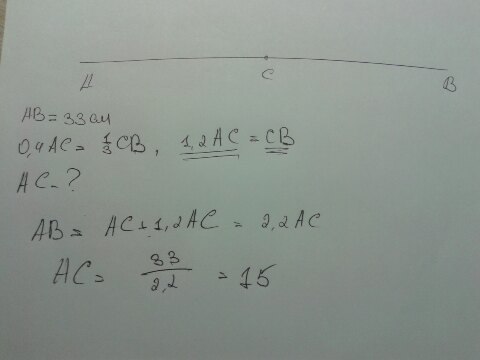 A C B
AB = 33 см
0,4 AC = 1/3 CB, 1,2 AC = CB
AC - ?
AB = AC + 1,2 AC = 2,2 AC
AC = 33/2,2 = 15